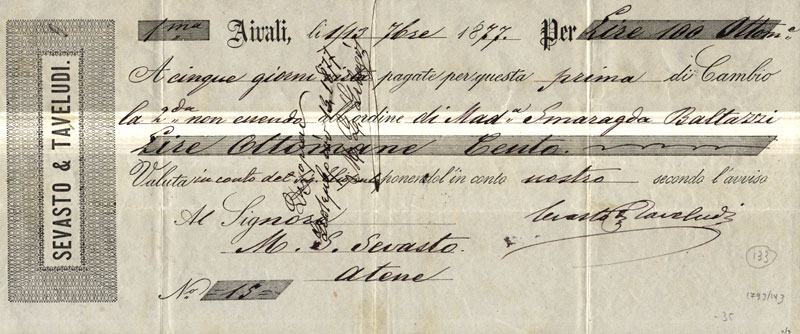 SEVASTO & TAVELUDI.
1ma Aivali, li 1/13 7bre 1877. Per Lire 100 Ottome
A cinque giorni vista pagate per questa prima di Cambio
la 2da non essendo all'ordine di Mada Smaragda Baltazzi
Lire Ottomane Cento.
Valuta in conto che ponendol'in conto nostro secondo l'avviso
Al Signore Sevasto & Taveludi
M. S. Sevasto.
Atene
No 15
133
1793/143
-35